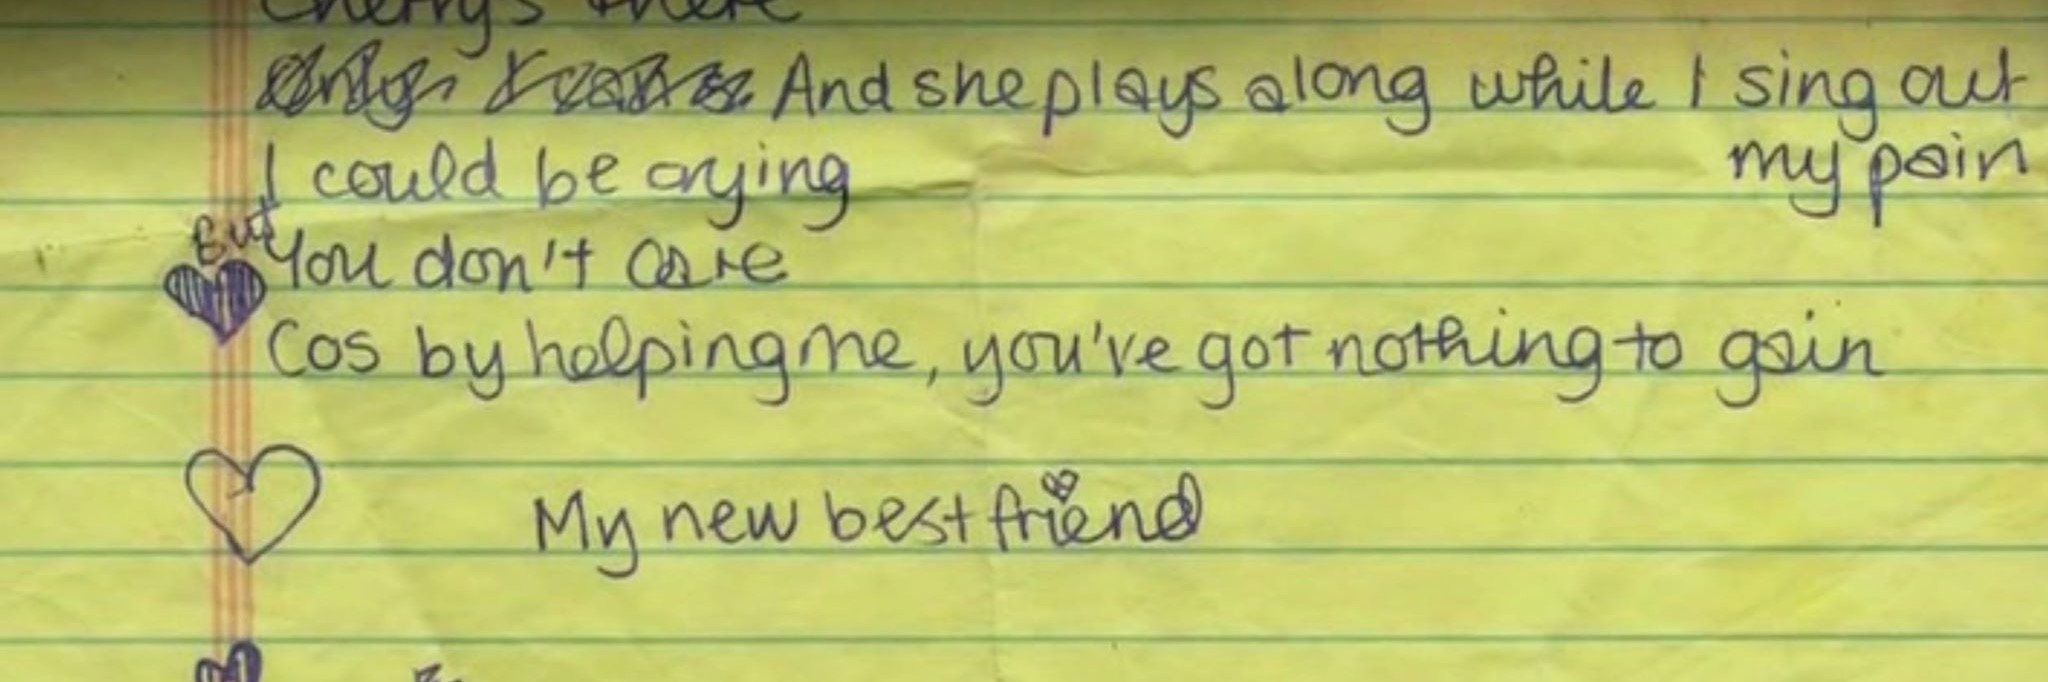 Cherry's there
And she plays along while I sing out
my pain
I could be crying
But You don't care
Cos by helping me, you've got nothing to gain
My new best friend